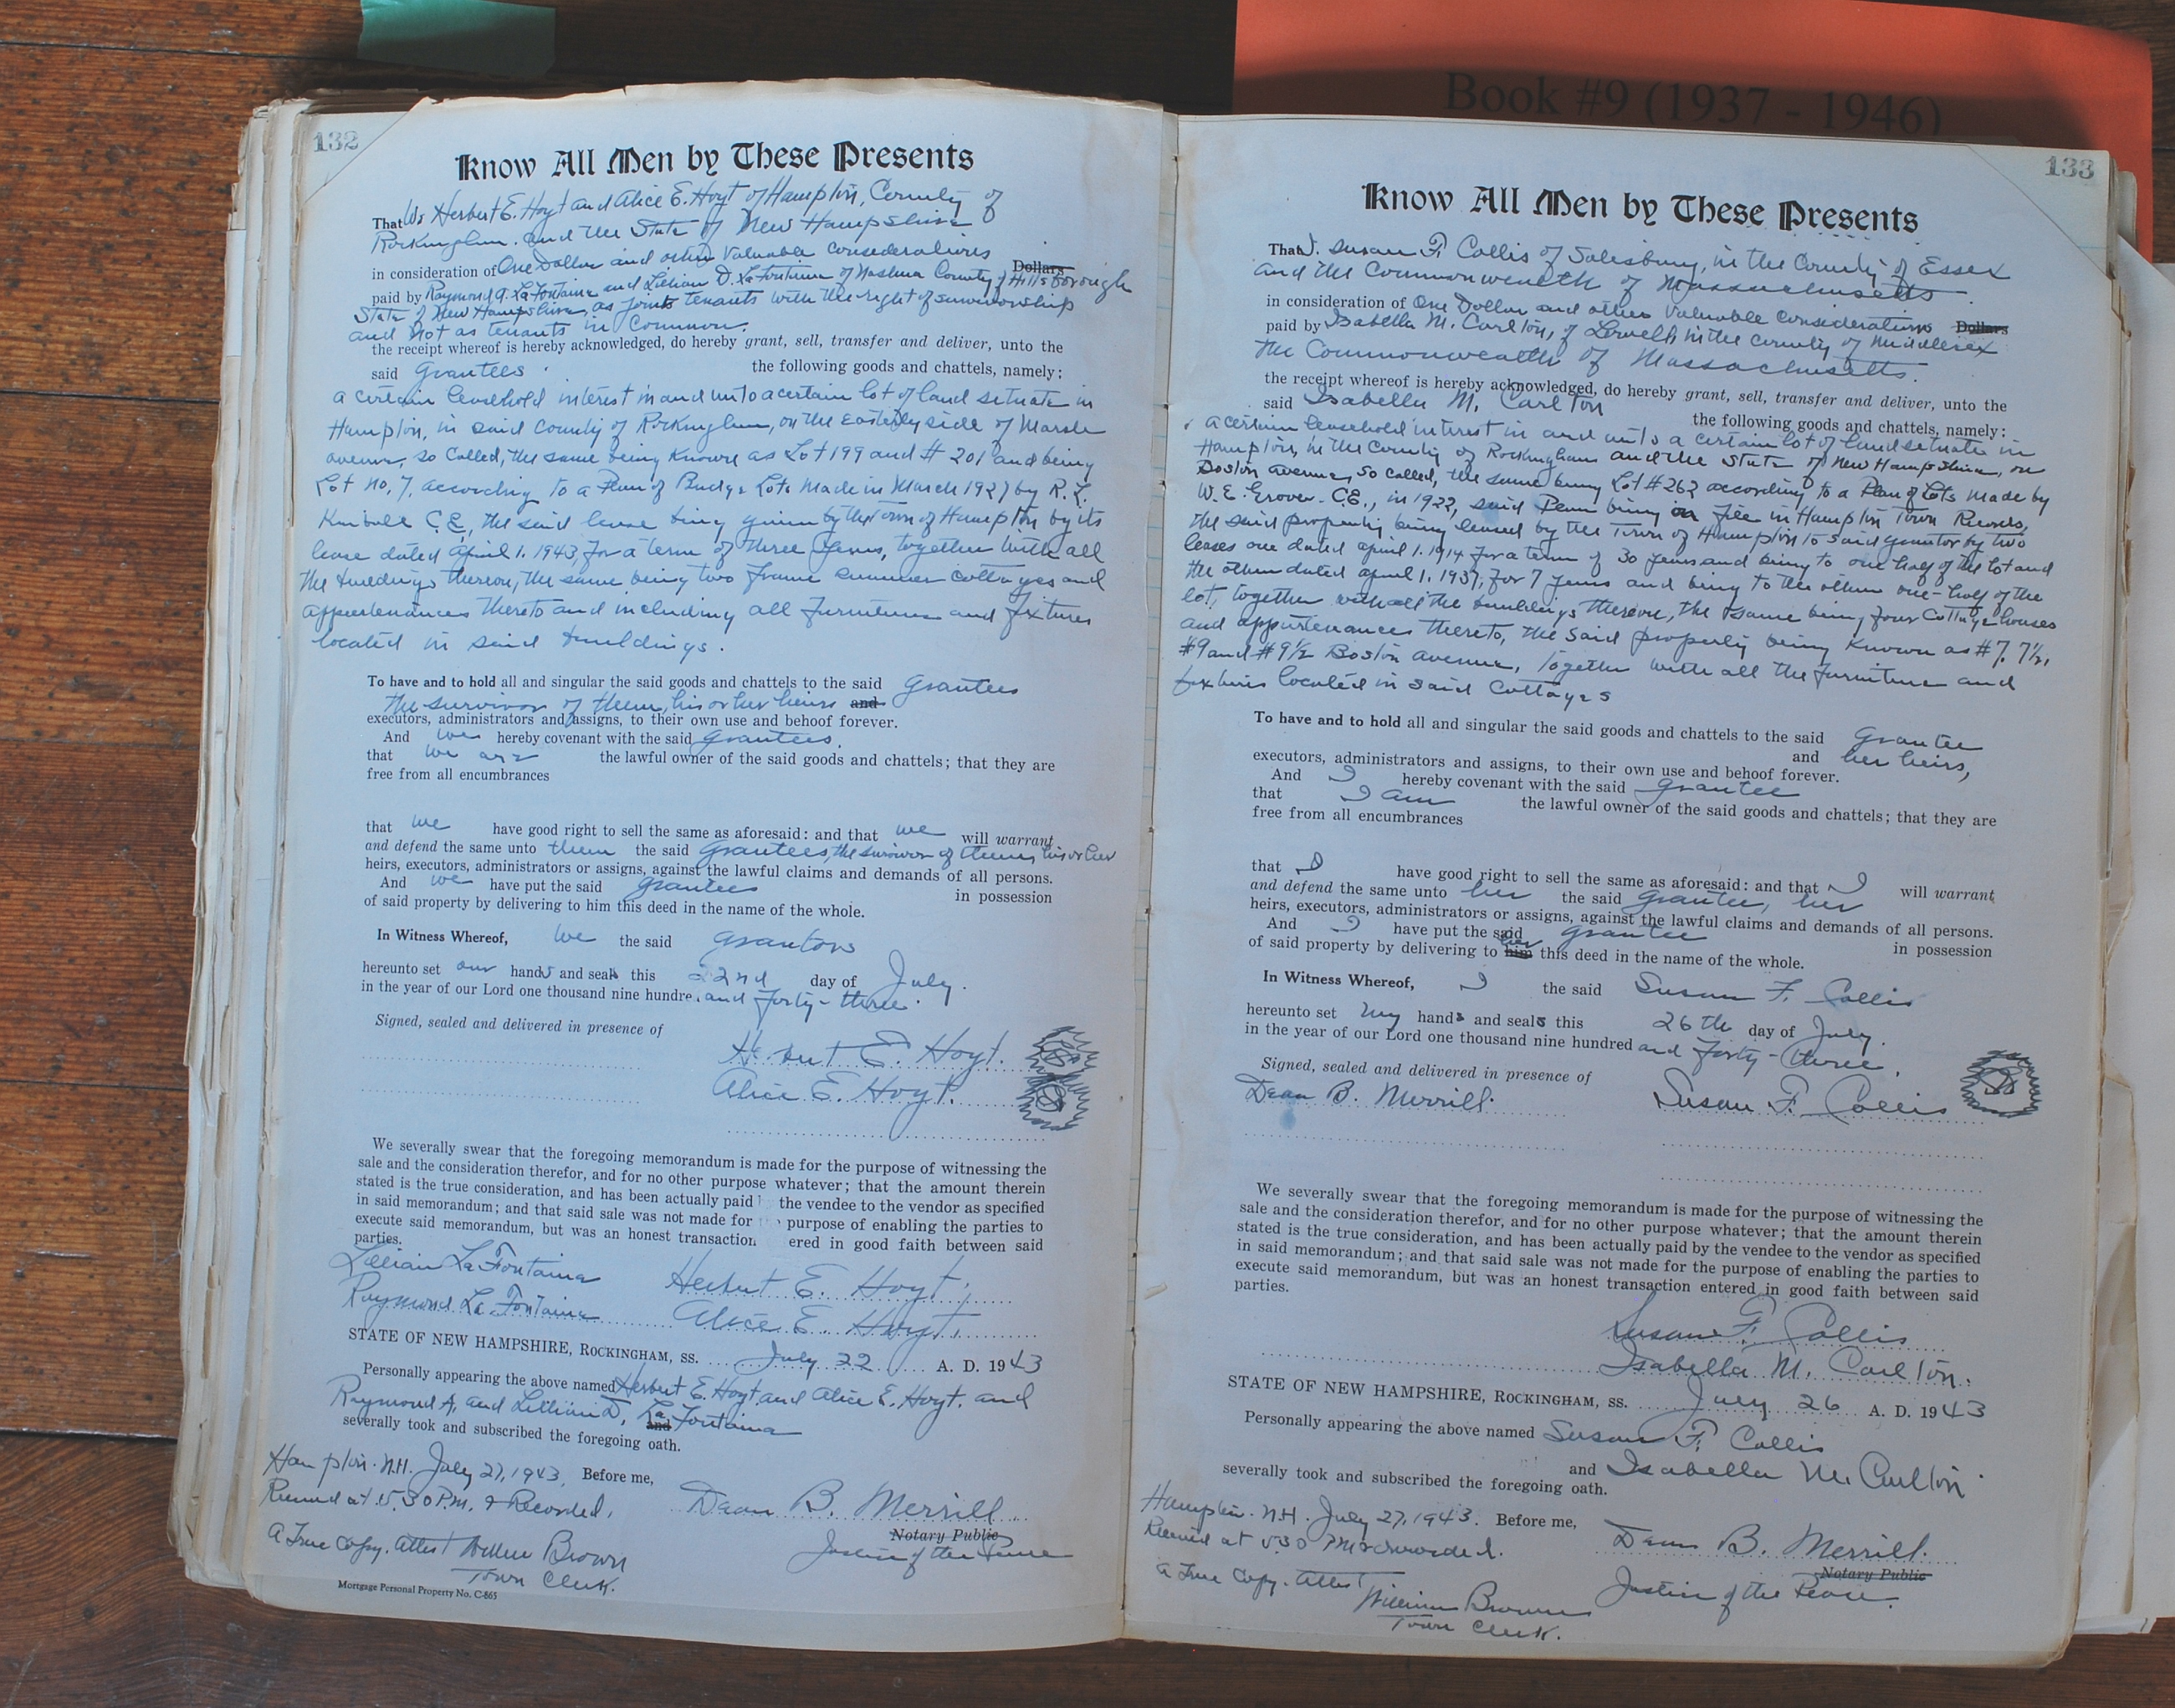 Book #9 (1937 - 1946)
132
Know All Men by These Presents
That We Herbert E. Hoyt and Alice E. Hoyt of Hampton, County of
Rockingham. and the State of New Hampshire
in consideration of One Dollar and other valuable considerations Dollars
paid by Raymond A. LaFontaine and Lillian D. LaFontaine of Nashua County of Hillsborough
State of New Hampshire, as joint tenants with the right of survivorship
and not as tenants in Common.
the receipt whereof is hereby acknowledged, do hereby grant, sell, transfer and deliver, unto the
said Grantees the following goods and chattels, namely:
a certain leasehold interest in and unto a certain lot of land situate in
Hampton, in said County of Rockingham, on the Easterly side of Marsh
avenue, so called, the same being known as Lot 199 and # 201 and being
Lot No. 7, according to a Plan of Lots made in March 1927 by R. L.
Kimball C.E., the said lease being given by the Town of Hampton by its
lease dated April 1. 1943, for a term of three years, together with all
the buildings thereon, the same being two frame summer cottages and
appurtenances thereto and including all furniture and fixtures
located in said buildings.
To have and to hold all and singular the said goods and chattels to the said Grantees
the survivor of them, his or her heirs and
executors, administrators and assigns, to their own use and behoof forever.
And we hereby covenant with the said Grantees.
that we are the lawful owner of the said goods and chattels; that they are
free from all encumbrances
that we have good right to sell the same as aforesaid: and that we will warrant
and defend the same unto them the said Grantees, the survivor of them, his or her
heirs, executors, administrators or assigns, against the lawful claims and demands of all persons.
And we have put the said grantees in possession
of said property by delivering to him this deed in the name of the whole.
In Witness Whereof, we the said grantors
hereunto set our hands and seals this 22nd day of July.
in the year of our Lord one thousand nine hundre and forty-three.
Signed, sealed and delivered in presence of
Herbert E. Hoyt.
Alice E. Hoyt.
We severally swear that the foregoing memorandum is made for the purpose of witnessing the
sale and the consideration therefor, and for no other purpose whatever; that the amount therein
stated is the true consideration, and has been actually paid the vendee to the vendor as specified
in said memorandum; and that said sale was not made for purpose of enabling the parties to
execute said memorandum, but was an honest transaction ered in good faith between said
parties.
Lillian LaFontaine Herbert E. Hoyt.
Raymond La Fontaine Alice E. Hoyt.
STATE OF NEW HAMPSHIRE, ROCKINGHAM, SS. July 22 A. D. 1943
Personally appearing the above named Herbert E. Hoyt and Alice E. Hoyt. and
Raymond A. and Lillian D. La Fontaine
and
severally took and subscribed the foregoing oath.
Hampton. N.H. July 27, 1943. Before me,
Received at 5.30 P.M. & Recorded. Dean B. Merrill
Notary Public
A True Copy. Attest William Brown Justice of the Peace
Town Clerk.
Mortgage Personal Property No. C-865
133
Know All Men by These Presents
That I. Susan F. Collis of Salisbury, in the County of Essex
and the Commonwealth of Massachusetts
in consideration of One Dollar and other valuable considerations Dollars
paid by Isabella M. Carlton, of Lowell, in the county of Middlesex
the Commonwealth of Massachusetts.
the receipt whereof is hereby acknowledged, do hereby grant, sell, transfer and deliver, unto the
said Isabella M. Carlton the following goods and chattels, namely:
a certain leasehold interest in and unto a certain lot of land situate in
Hampton, in the County of Rockingham and the State of New Hampshire, on
Boston avenue, so called, the same being Lot #262 according to a Plan of Lots made by
W. E. Grover. C.E., in 1922, said Plan being on file in Hampton Town Records,
the said property being leased by the Town of Hampton to said grantor by two
leases one dated April 1. 1914 for a term of 30 years and being to one half of the lot and
the other dated April 1, 1937, for 7 years and being to the other one-half of the
lot, together with all the buildings thereon, the same being four Cottage houses
and appurtenances thereto, the said property being known as #7, 7½,
#9 and #9½ Boston avenue, together with all the furniture and
fixtures located in said Cottages
To have and to hold all and singular the said goods and chattels to the said Grantee
and her heirs,
executors, administrators and assigns, to their own use and behoof forever.
And I hereby covenant with the said grantee
that I am the lawful owner of the said goods and chattels; that they are
free from all encumbrances
that I have good right to sell the same as aforesaid: and that I will warrant
and defend the same unto her the said grantee, her
heirs, executors, administrators or assigns, against the lawful claims and demands of all persons.
And I have put the said grantee in possession
of said property by delivering to him her this deed in the name of the whole.
In Witness Whereof, I the said Susan F. Collis
hereunto set my hands and seals this 26th day of July.
in the year of our Lord one thousand nine hundred and forty-three.
Signed, sealed and delivered in presence of
Dean B. Merrill. Susan F. Collis
We severally swear that the foregoing memorandum is made for the purpose of witnessing the
sale and the consideration therefor, and for no other purpose whatever; that the amount therein
stated is the true consideration, and has been actually paid by the vendee to the vendor as specified
in said memorandum; and that said sale was not made for the purpose of enabling the parties to
execute said memorandum, but was an honest transaction entered in good faith between said
parties.
Susan F. Collis
Isabella M. Carlton.
STATE OF NEW HAMPSHIRE, ROCKINGHAM, SS. July 26 A. D. 1943
Personally appearing the above named Susan F. Collis
and Isabella M. Carlton
severally took and subscribed the foregoing oath.
Hampton. N.H. July 27, 1943. Before me,
Received at 5.30 P.M. & recorded. Dean B. Merrill.
Notary Public
A True Copy. Attest Justice of the Peace.
William Brown
Town Clerk.